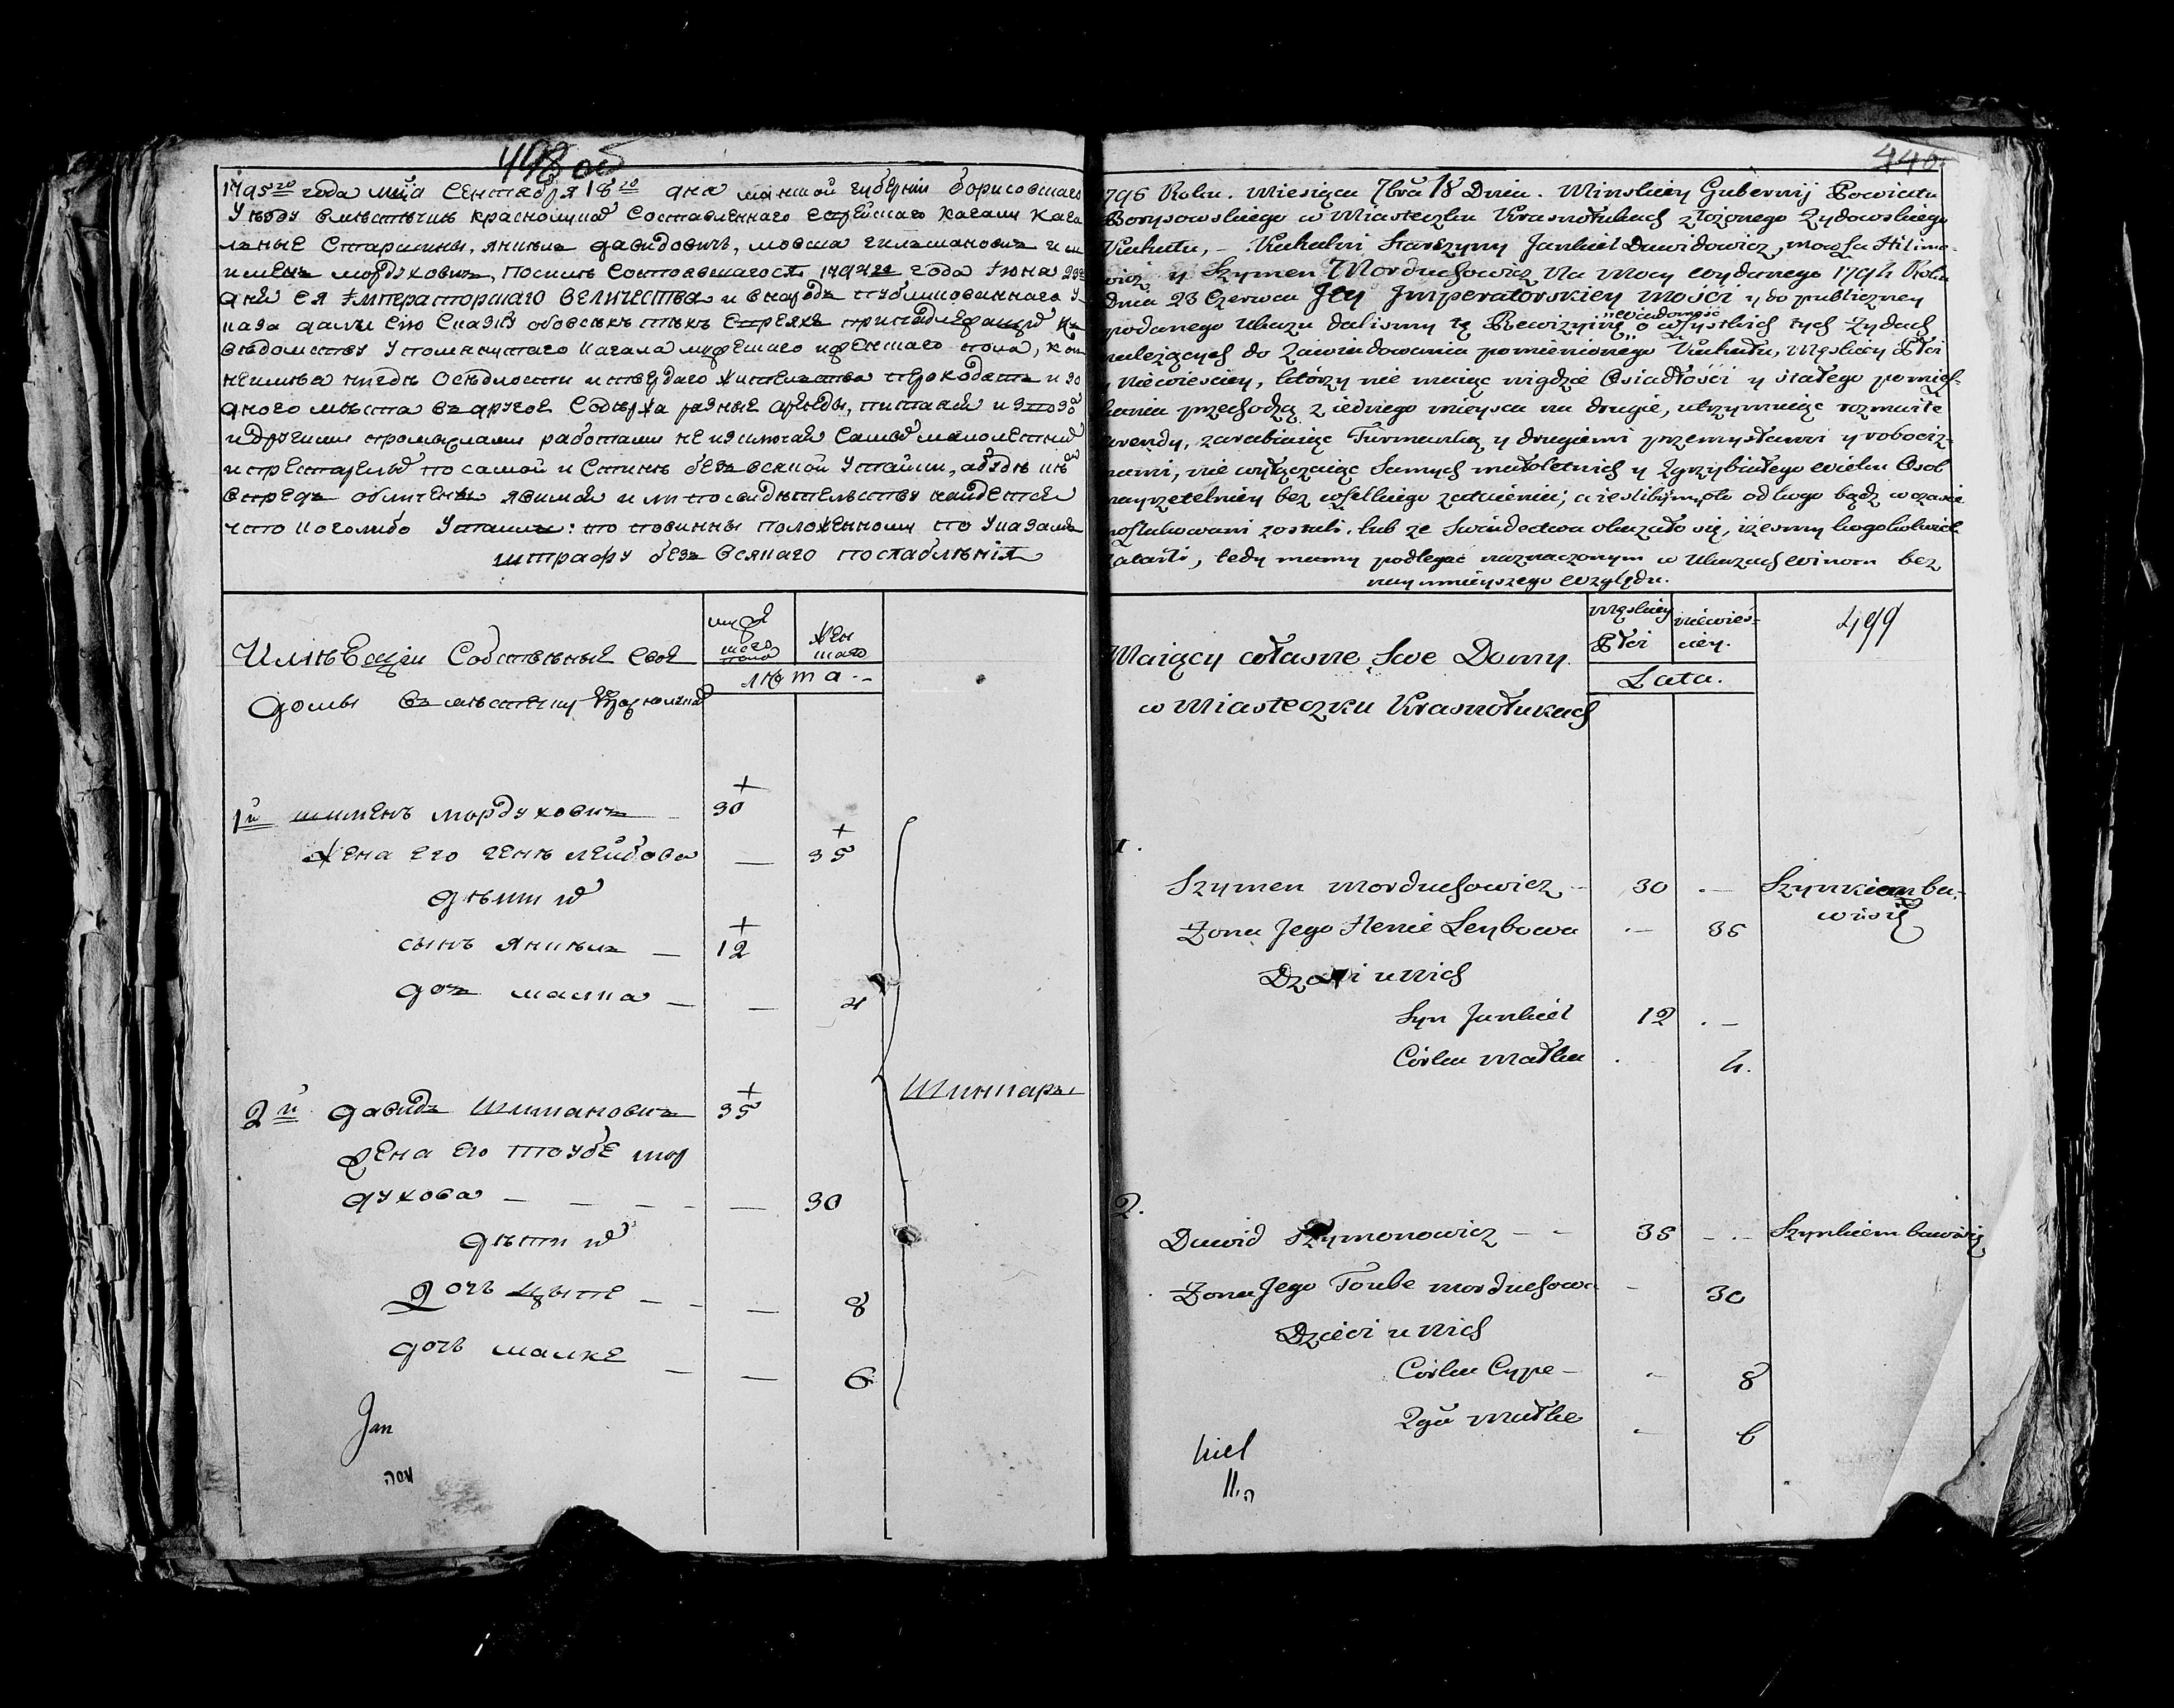 498 об
1795го года м҃ца Сентября 18го дня минской губернии борисовскаго
Уѣзду вмѣстѣчкѣ краснолукахъ Составленнаго еврейскаго кагалу кага
лные Старшины, янкель давидовичъ, мовша гилмановичъ и ши
именъ мордуховичъ, посилѣ Состоявшагося 1794го года Июня 23го
дня ея Императорскаго величества и внародъ публикованнаго У
каза дали сию Сказку обовсѣхъ тѣхъ Евреяхъ принадлежащихъ къ
вѣдомству Упомянутаго кагала мужескаго иженскаго пола, кои
неимѣя нигдѣ Осѣдлости и твердаго жителства переходятъ изо
дного мѣста въ другое Содержа разные аренды, питаясь извозо
идругими промыслами работами не изключая Самыхъ малолетнихъ
ипрестарелыхъ посамой иСтиннѣ безъ всякой Утайки, абудѣ кѣ
впредь обличены явимся или посвидѣтельству найдется
что коголибо Утаили: то повинны положенному по Указамъ
штрафу безъ всякаго послаблѣния
Имѣющии Собственные своя
домы въ мѣстечку Краснолукахъ
мужескаго пола
женскаго
лѣта
1й шименъ мордуховичъ 30
жена его гене лейбова — 35
дѣти ихъ
сынъ янкель — 12
дочь малка — — 4
2й давидъ Шимановичъ 35
жена его тоубе мор
духова — — — — 30
дѣти ихъ
дочь цыпе — — — 8
дочь малке — — 6
Шинкаръ
Jan
1796 Roku. Miesiąca 7bra 18 Dnia. Minskiey Gubernij Powiatu
Borysowskiego w Miasteczku Krasnołukach złożonego Żydowskiego
Kahału, – Kahalni Starszyny Jankiel Dawidowicz, Mowsza Hilima-
wicz y Szymen Morduchowicz Na Mocy wydanego 1794 Roku
Dnia 23 Czerwca Jey Jmperatorskiey Mości y do publiczney
podanego Ukazu daliśmy tę Rewizyiną wiadomość o wszystkich tych Żydach
należących do Zawiadowania pomienionego Kahału, Męskiey Płci
y Niewieściey, którzy nie maiąc nigdzie Osiadłości y stałego pomiesz-
kania przechodzą z iednego mieysca na drugie, utrzymuiąc rozmaite
arendy, zarabiaiąc Furmanką y drugiemi przemysłami y robociz-
nami, nie wyłączaiąc Samych małoletnich y Zgrzybiałego wieku Osob
nayrzetelniey bez wszelkiego zataienia; a ieslibyśmy to od kogo bądz w czasie
poszlakowani zostali. lub ze Swiadectwa okazało się, iżesmy kogokolwiek
zataili, tedy mamy podlegać naznaczonym w Ukazach winom bez
naymnieyszego względu.
440
499
Maiący własne Swe Domy
w Miasteczku Krasnołukach
Męskiey Płci
niewieś-
ciey.
Lata.
1.
Szymen Morduchowicz – 30 . — Szynkiem ba-
wiący
Żona Jego Henie Leybowa . — 35
Dzieci u Nich
Syn Jankiel 12 . —
Córka Małka . 4.
2.
Dawid Szymonowicz – – 35 – . – Szynkiem bawiący
Żona Jego Toube Morduchowa – 30
Dzieci u Nich
Córka Cype – . – 8
2ga Małke – 6
kiel